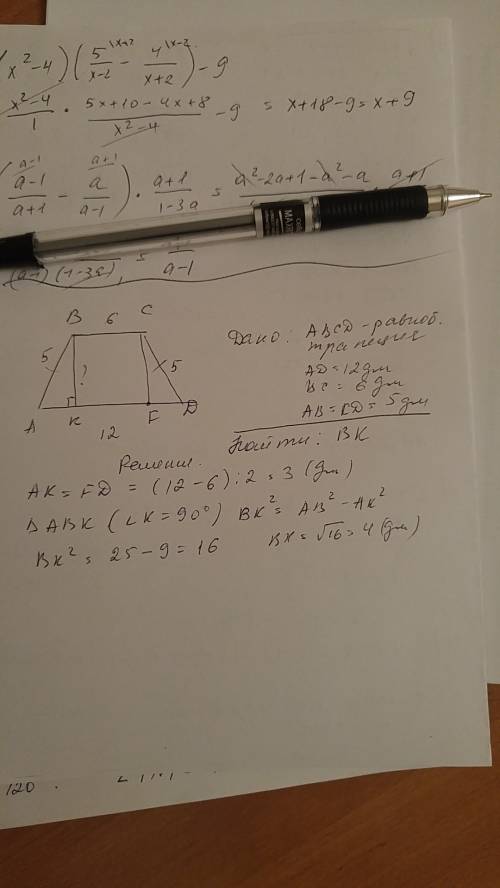 (x²-4)(5\x+2/x-2 - 4\x-2/x+2) - 9
x²-4/1 · 5x+10-4x+8/x²-4 - 9 = x+18-9=x+9
(a-1\a-1/a+1 - a\a+1/a-1) · a+1/1-3a = a²-2a+1-a²-a · a+1
(a-1)(1-3a) = a-1
B 6 C
5 ? 5
A K F D
12
Дано: ABCD - равноб.
трапеция
AD = 12дм
BC = 6 дм
AB = CD = 5дм
Найти: BK
Решение.
AK = FD = (12-6):2 = 3 (дм)
ΔABK (∠K=90°) BK² = AB² - AK²
BK² = 25-9=16 BK=√16=4 (дм)
120 .